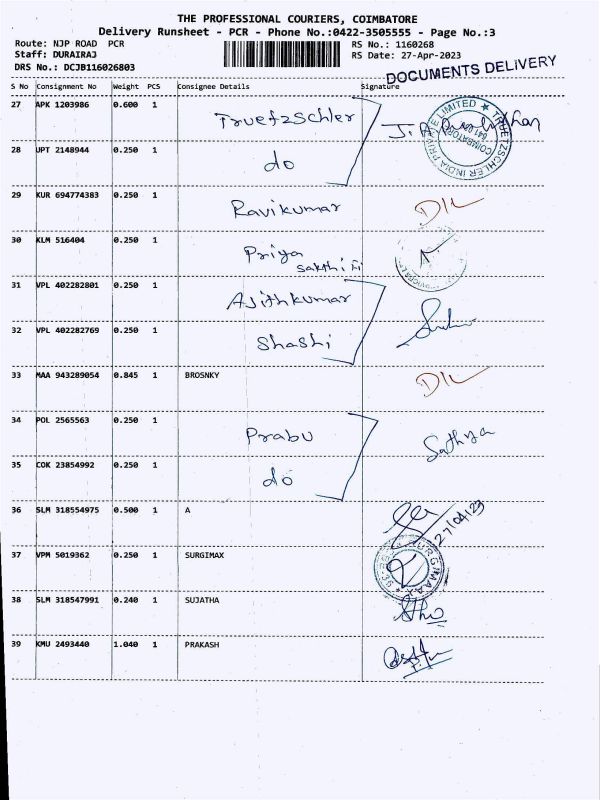 THE PROFESSIONAL COURIERS, COIMBATORE
Delivery Runsheet - PCR - Phone No.:0422-3505555 - Page No.:3
Route: NJP ROAD PCR
RS No.: 1160268
Staff: DURAIRAJ
RS Date: 27-Apr-2023
DRS No.: DCJB116026803
DOCUMENTS DELIVERY
S No Consignment No Weight PCS Consignee Details Signature
27 APK 1203986 0.600 1 Truetzschler
TRUETZSCHLER INDIA PRIVATE LIMITED ★ COIMBATORE
28 UPT 2148944 0.250 1 do
29 KUR 694774383 0.250 1 Ravikumar DIL
30 KLM 516404 0.250 1 Priya
31 VPL 402282801 0.250 1 Ajithkumar
32 VPL 402282769 0.250 1 Shashi
33 MAA 943289054 0.845 1 BROSNKY DIL
34 POL 2565563 0.250 1 Prabu Sathya
35 COK 23854992 0.250 1 do
36 SLM 318554975 0.500 1 A 27/04/23
37 VPM 5019362 0.250 1 SURGIMAX
38 SLM 318547991 0.240 1 SUJATHA
39 KMU 2493440 1.040 1 PRAKASH